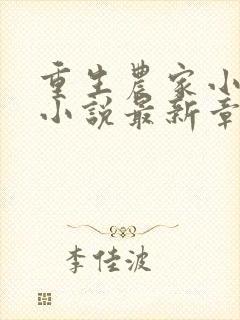 重生农家小
小说最新章
李佳波